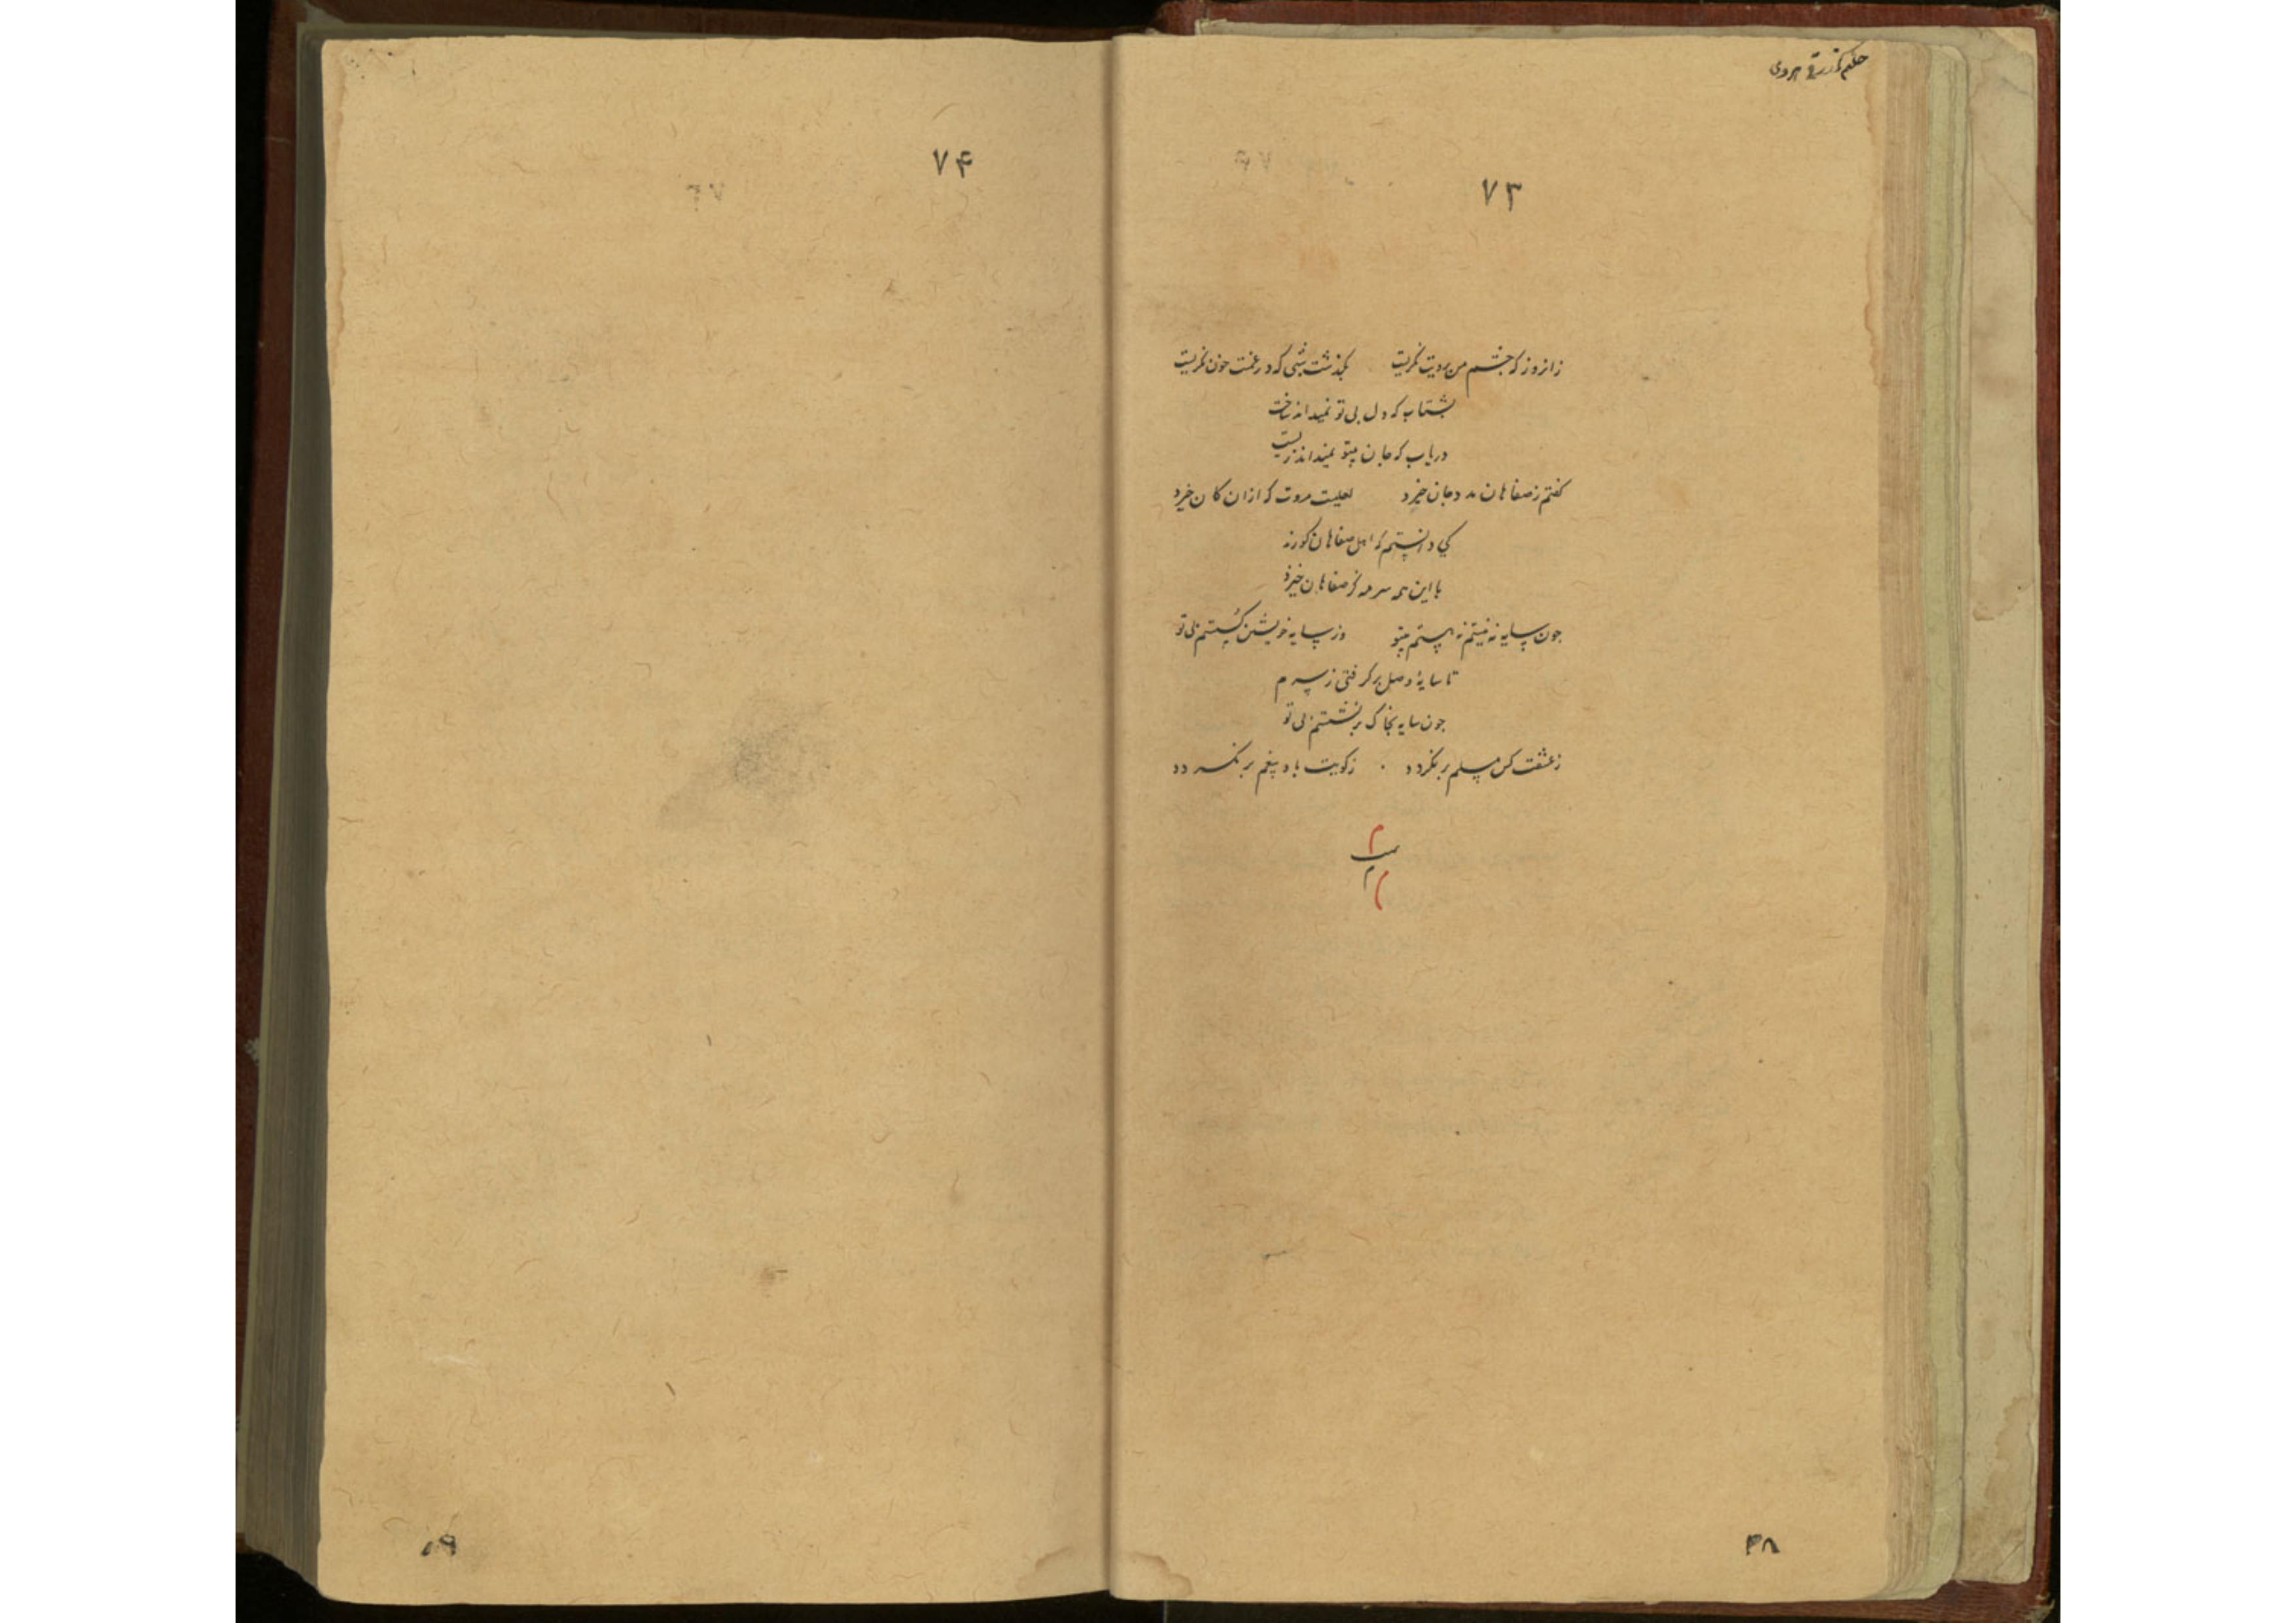 حکیم ازرقی هروی
۷۳
زانروز که چشم من برویت نگریست بگذشت شبی که در غمت خون نگریست
بشتاب که دل بی تو نمیداند ساخت
دریاب که جان بیتو نمیداند زیست
گفتم ز صفاهان مدد جان خیزد لعلیست مروت که ازان کان خیزد
کی دانستم که اهل صفاهان کورند
با این همه سرمه کز صفاهان خیزد
چون سایه نه نیستم نه هستم بیتو وز سایه خویشتن گسستم بی تو
تا سایۀ وصل بر گرفتی ز سرم
چون سایه بخاک بر نشستم بی تو
ز عشقت کس مسلم بر نگردد ز کویت باد بیغم بر نگردد
تمت
م
م
۴۸
۷۴